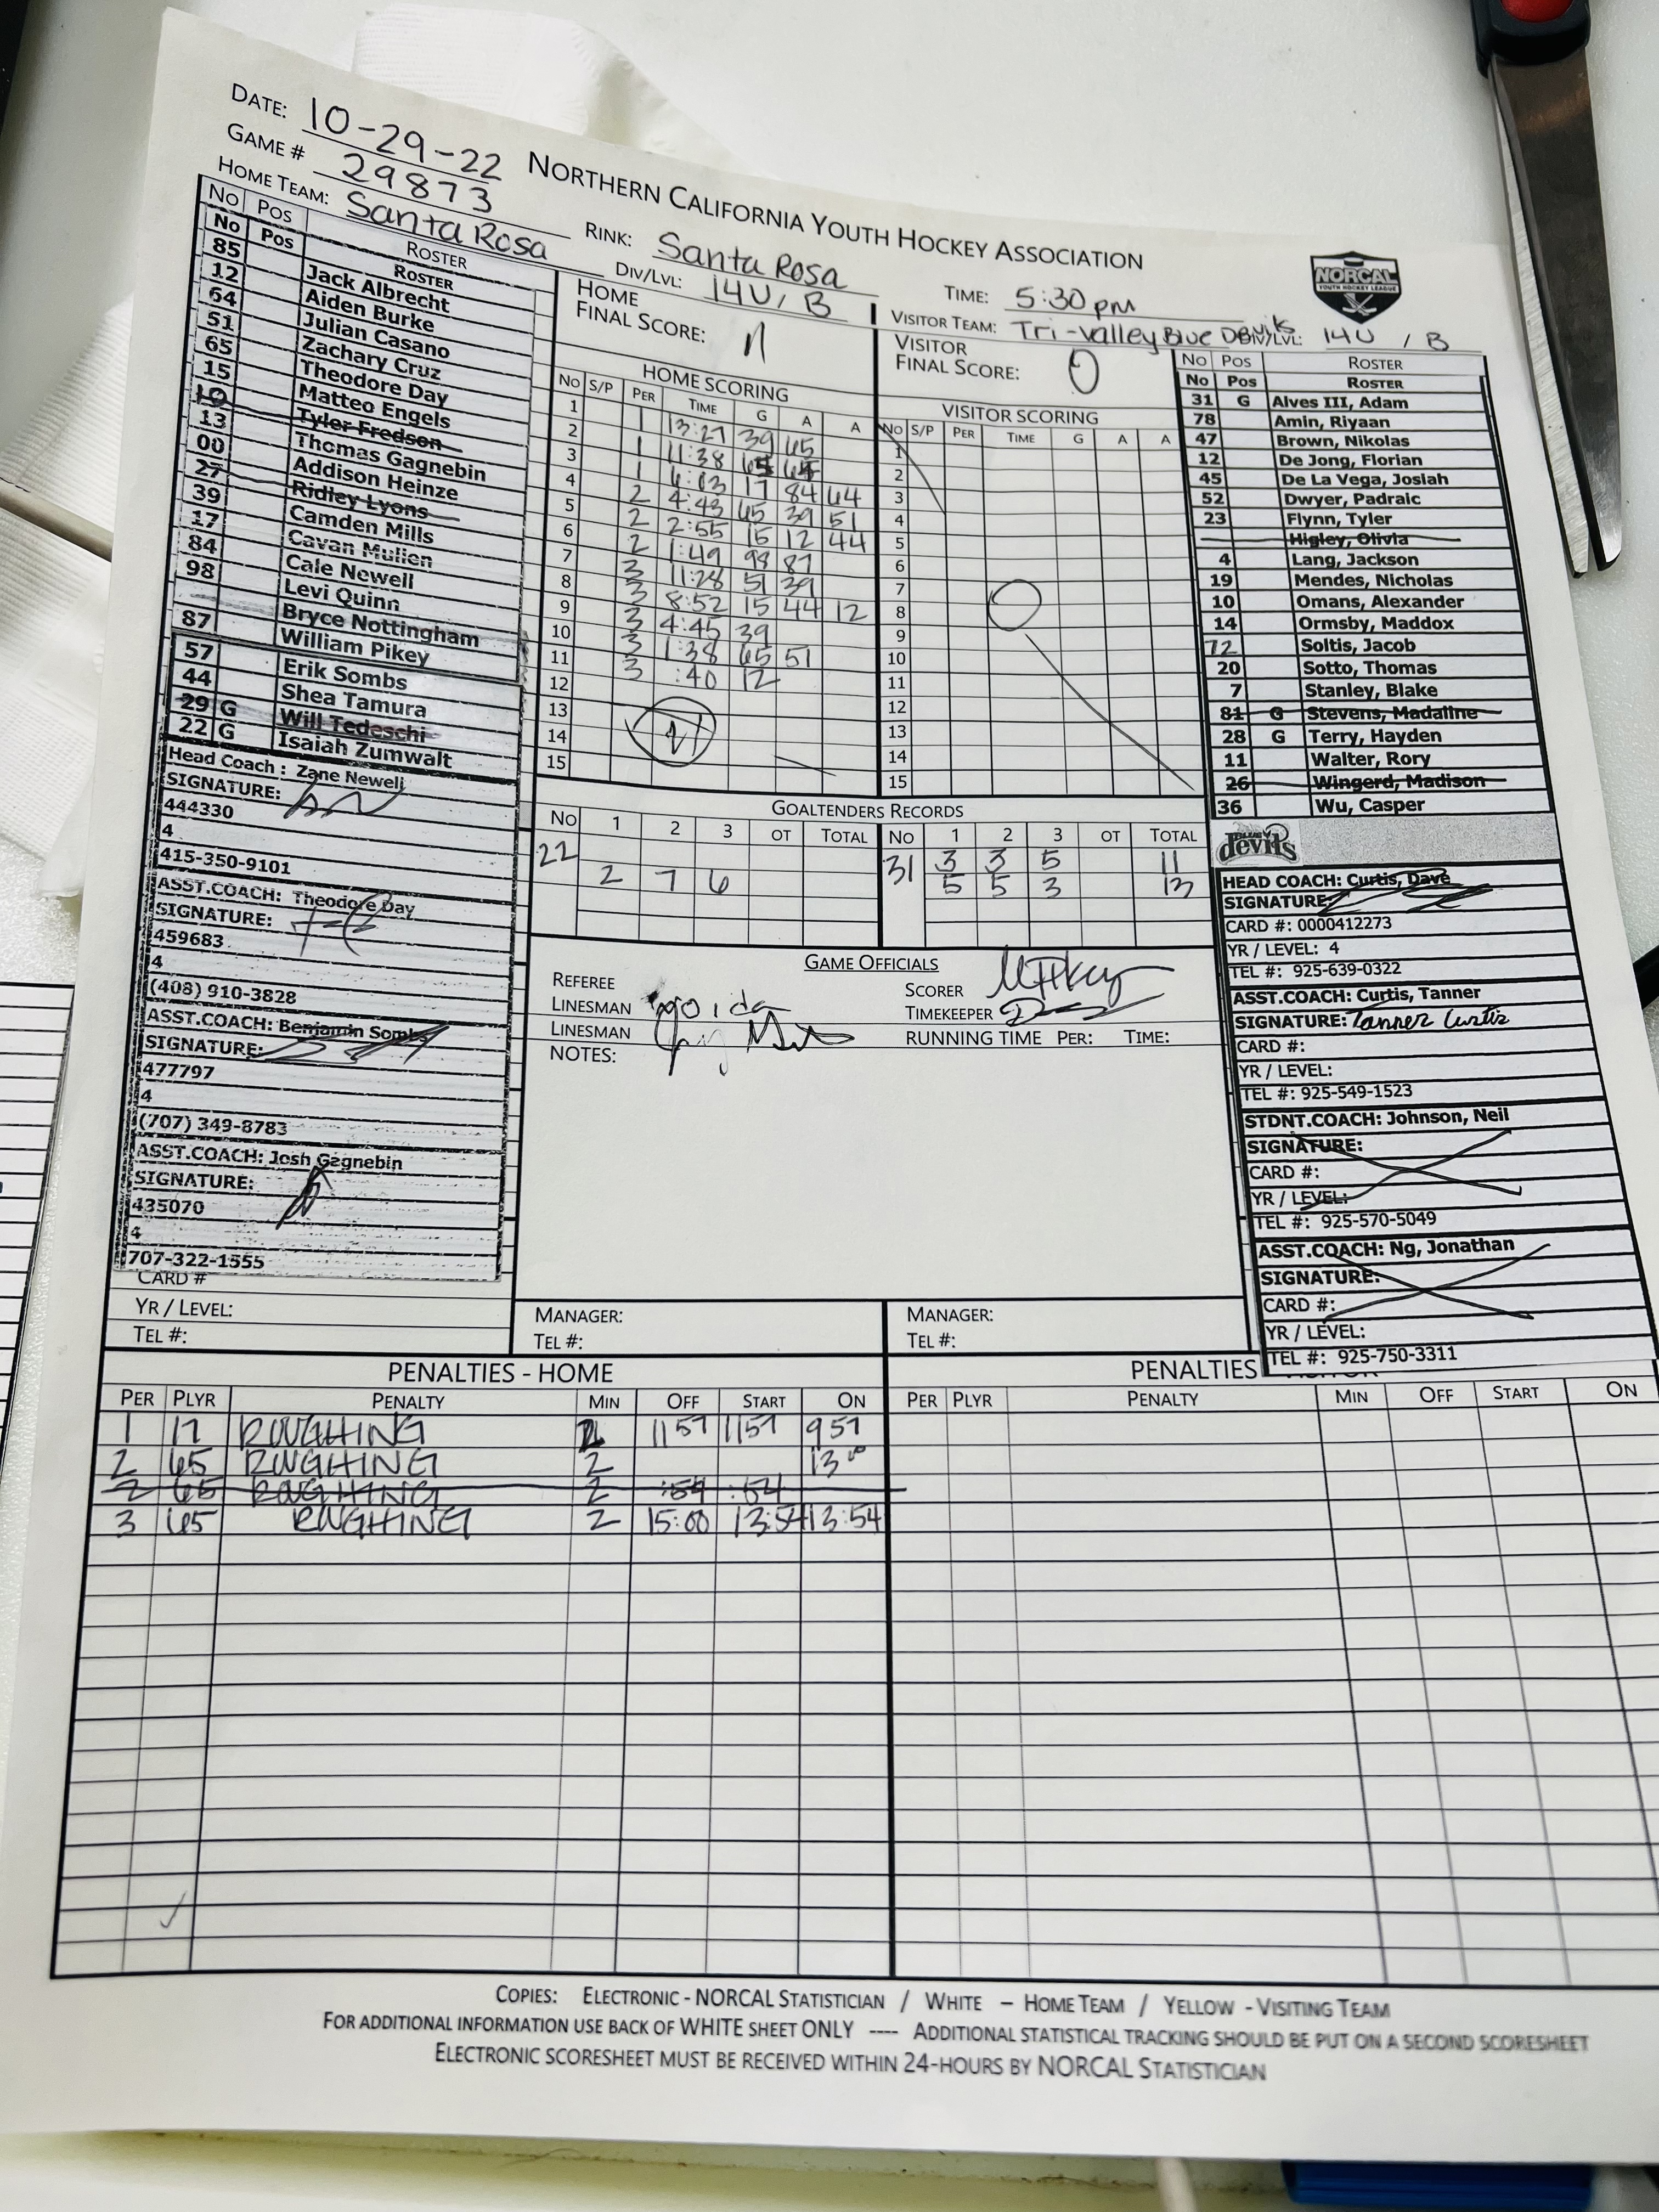 DATE: 10-29-22
NORTHERN CALIFORNIA YOUTH HOCKEY ASSOCIATION
GAME # 29873
HOME TEAM: Santa Rosa
RINK: Santa Rosa
TIME: 5:30 pm
NORCAL
YOUTH HOCKEY LEAGUE
DIV/LVL: 14U / B
VISITOR TEAM: Tri-Valley Blue Devils DIV/LVL: 14U / B
NO POS ROSTER
No Pos ROSTER
85 Jack Albrecht
12 Aiden Burke
64 Julian Casano
51 Zachary Cruz
65 Theodore Day
15 Matteo Engels
10 Tyler Fredson
13 Thomas Gagnebin
00 Addison Heinze
27 Ridley Lyons
39 Camden Mills
17 Cavan Mullen
84 Cale Newell
98 Levi Quinn
Bryce Nottingham
87 William Pikey
57 Erik Sombs
44 Shea Tamura
29 G Will Tedeschi
22 G Isaiah Zumwalt
Head Coach : Zane Newell
SIGNATURE:
444330
4
415-350-9101
ASST.COACH: Theodore Day
SIGNATURE:
459683
4
(408) 910-3828
ASST.COACH: Benjamin Sombs
SIGNATURE:
477797
4
(707) 349-8783
ASST.COACH: Josh Gagnebin
SIGNATURE:
435070
4
707-322-1555
CARD #
YR / LEVEL:
TEL #:
HOME
FINAL SCORE: 11
HOME SCORING
NO S/P PER TIME G A A
1 1 13:27 39 65
2 1 11:38 65
3 1 6:03 17 84 64
4 2 4:43 65 39 51
5 2 2:55 15 12 44
6 2 1:49 98 87
7 3 11:28 51 39
8 3 8:52 15 44 12
9 3 4:45 39
10 3 1:38 65 51
11 3 :40 12
12
13
14
15
11
VISITOR
FINAL SCORE: 0
VISITOR SCORING
NO S/P PER TIME G A A
1
2
3
4
5
6
7
8
9
10
11
12
13
14
15
0
GOALTENDERS RECORDS
NO 1 2 3 OT TOTAL
22
2 7 6
NO 1 2 3 OT TOTAL
31 3 3 5 11
5 5 3 13
GAME OFFICIALS
REFEREE
LINESMAN
LINESMAN
NOTES:
SCORER
TIMEKEEPER
RUNNING TIME PER: TIME:
MANAGER:
TEL #:
MANAGER:
TEL #:
NO POS ROSTER
No Pos ROSTER
31 G Alves III, Adam
78 Amin, Riyaan
47 Brown, Nikolas
12 De Jong, Florian
45 De La Vega, Josiah
52 Dwyer, Padraic
23 Flynn, Tyler
Higley, Olivia
4 Lang, Jackson
19 Mendes, Nicholas
10 Omans, Alexander
14 Ormsby, Maddox
72 Soltis, Jacob
20 Sotto, Thomas
7 Stanley, Blake
81 G Stevens, Madaline
28 G Terry, Hayden
11 Walter, Rory
26 Wingerd, Madison
36 Wu, Casper
BLUE devils
HEAD COACH: Curtis, Dave
SIGNATURE:
CARD #: 0000412273
YR / LEVEL: 4
TEL #: 925-639-0322
ASST.COACH: Curtis, Tanner
SIGNATURE: Tanner Curtis
CARD #:
YR / LEVEL:
TEL #: 925-549-1523
STDNT.COACH: Johnson, Neil
SIGNATURE:
CARD #:
YR / LEVEL:
TEL #: 925-570-5049
ASST.COACH: Ng, Jonathan
SIGNATURE:
CARD #:
YR / LEVEL:
TEL #: 925-750-3311
PENALTIES - HOME
PER PLYR PENALTY MIN OFF START ON
1 17 ROUGHING 2 1157 1157 957
2 65 ROUGHING 2 13:00
2 65 ROUGHING 2 :54 :54
3 65 ROUGHING 2 15:00 13:54 13:54
PENALTIES
PER PLYR PENALTY MIN OFF START ON
COPIES: ELECTRONIC - NORCAL STATISTICIAN / WHITE – HOME TEAM / YELLOW - VISITING TEAM
FOR ADDITIONAL INFORMATION USE BACK OF WHITE SHEET ONLY ---- ADDITIONAL STATISTICAL TRACKING SHOULD BE PUT ON A SECOND SCORESHEET
ELECTRONIC SCORESHEET MUST BE RECEIVED WITHIN 24-HOURS BY NORCAL STATISTICIAN